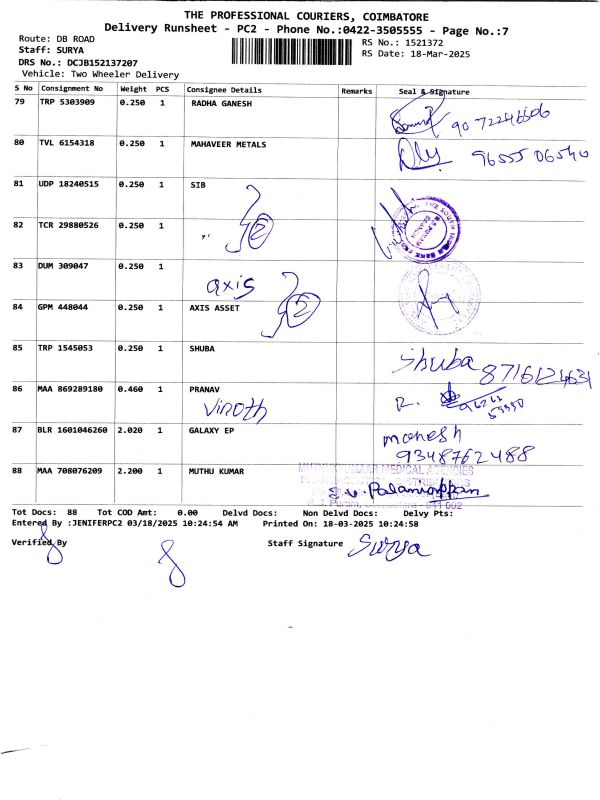 THE PROFESSIONAL COURIERS, COIMBATORE
Delivery Runsheet - PC2 - Phone No.:0422-3505555 - Page No.:7
Route: DB ROAD
RS No.: 1521372
Staff: SURYA
RS Date: 18-Mar-2025
DRS No.: DCJB152137207
Vehicle: Two Wheeler Delivery
S No Consignment No Weight PCS Consignee Details Remarks Seal & Signature
79 TRP 5303909 0.250 1 RADHA GANESH
80 TVL 6154318 0.250 1 MAHAVEER METALS
96555 06540
81 UDP 18240515 0.250 1 SIB
82 TCR 29880526 0.250 1
83 DUM 309047 0.250 1
axis
84 GPM 448044 0.250 1 AXIS ASSET
85 TRP 1545053 0.250 1 SHUBA
Shuba 8716124631
86 MAA 869289180 0.460 1 PRANAV
Vinoth R.
87 BLR 1601046260 2.020 1 GALAXY EP
manesh
9348762488
88 MAA 708076209 2.200 1 MUTHU KUMAR
MEDICAL AGENCIES
Palaniappan
Tot Docs: 88 Tot COD Amt: 0.00 Delvd Docs: Non Delvd Docs: Delvy Pts:
Entered By :JENIFERPC2 03/18/2025 10:24:54 AM Printed On: 18-03-2025 10:24:58
Verified By Staff Signature Surya